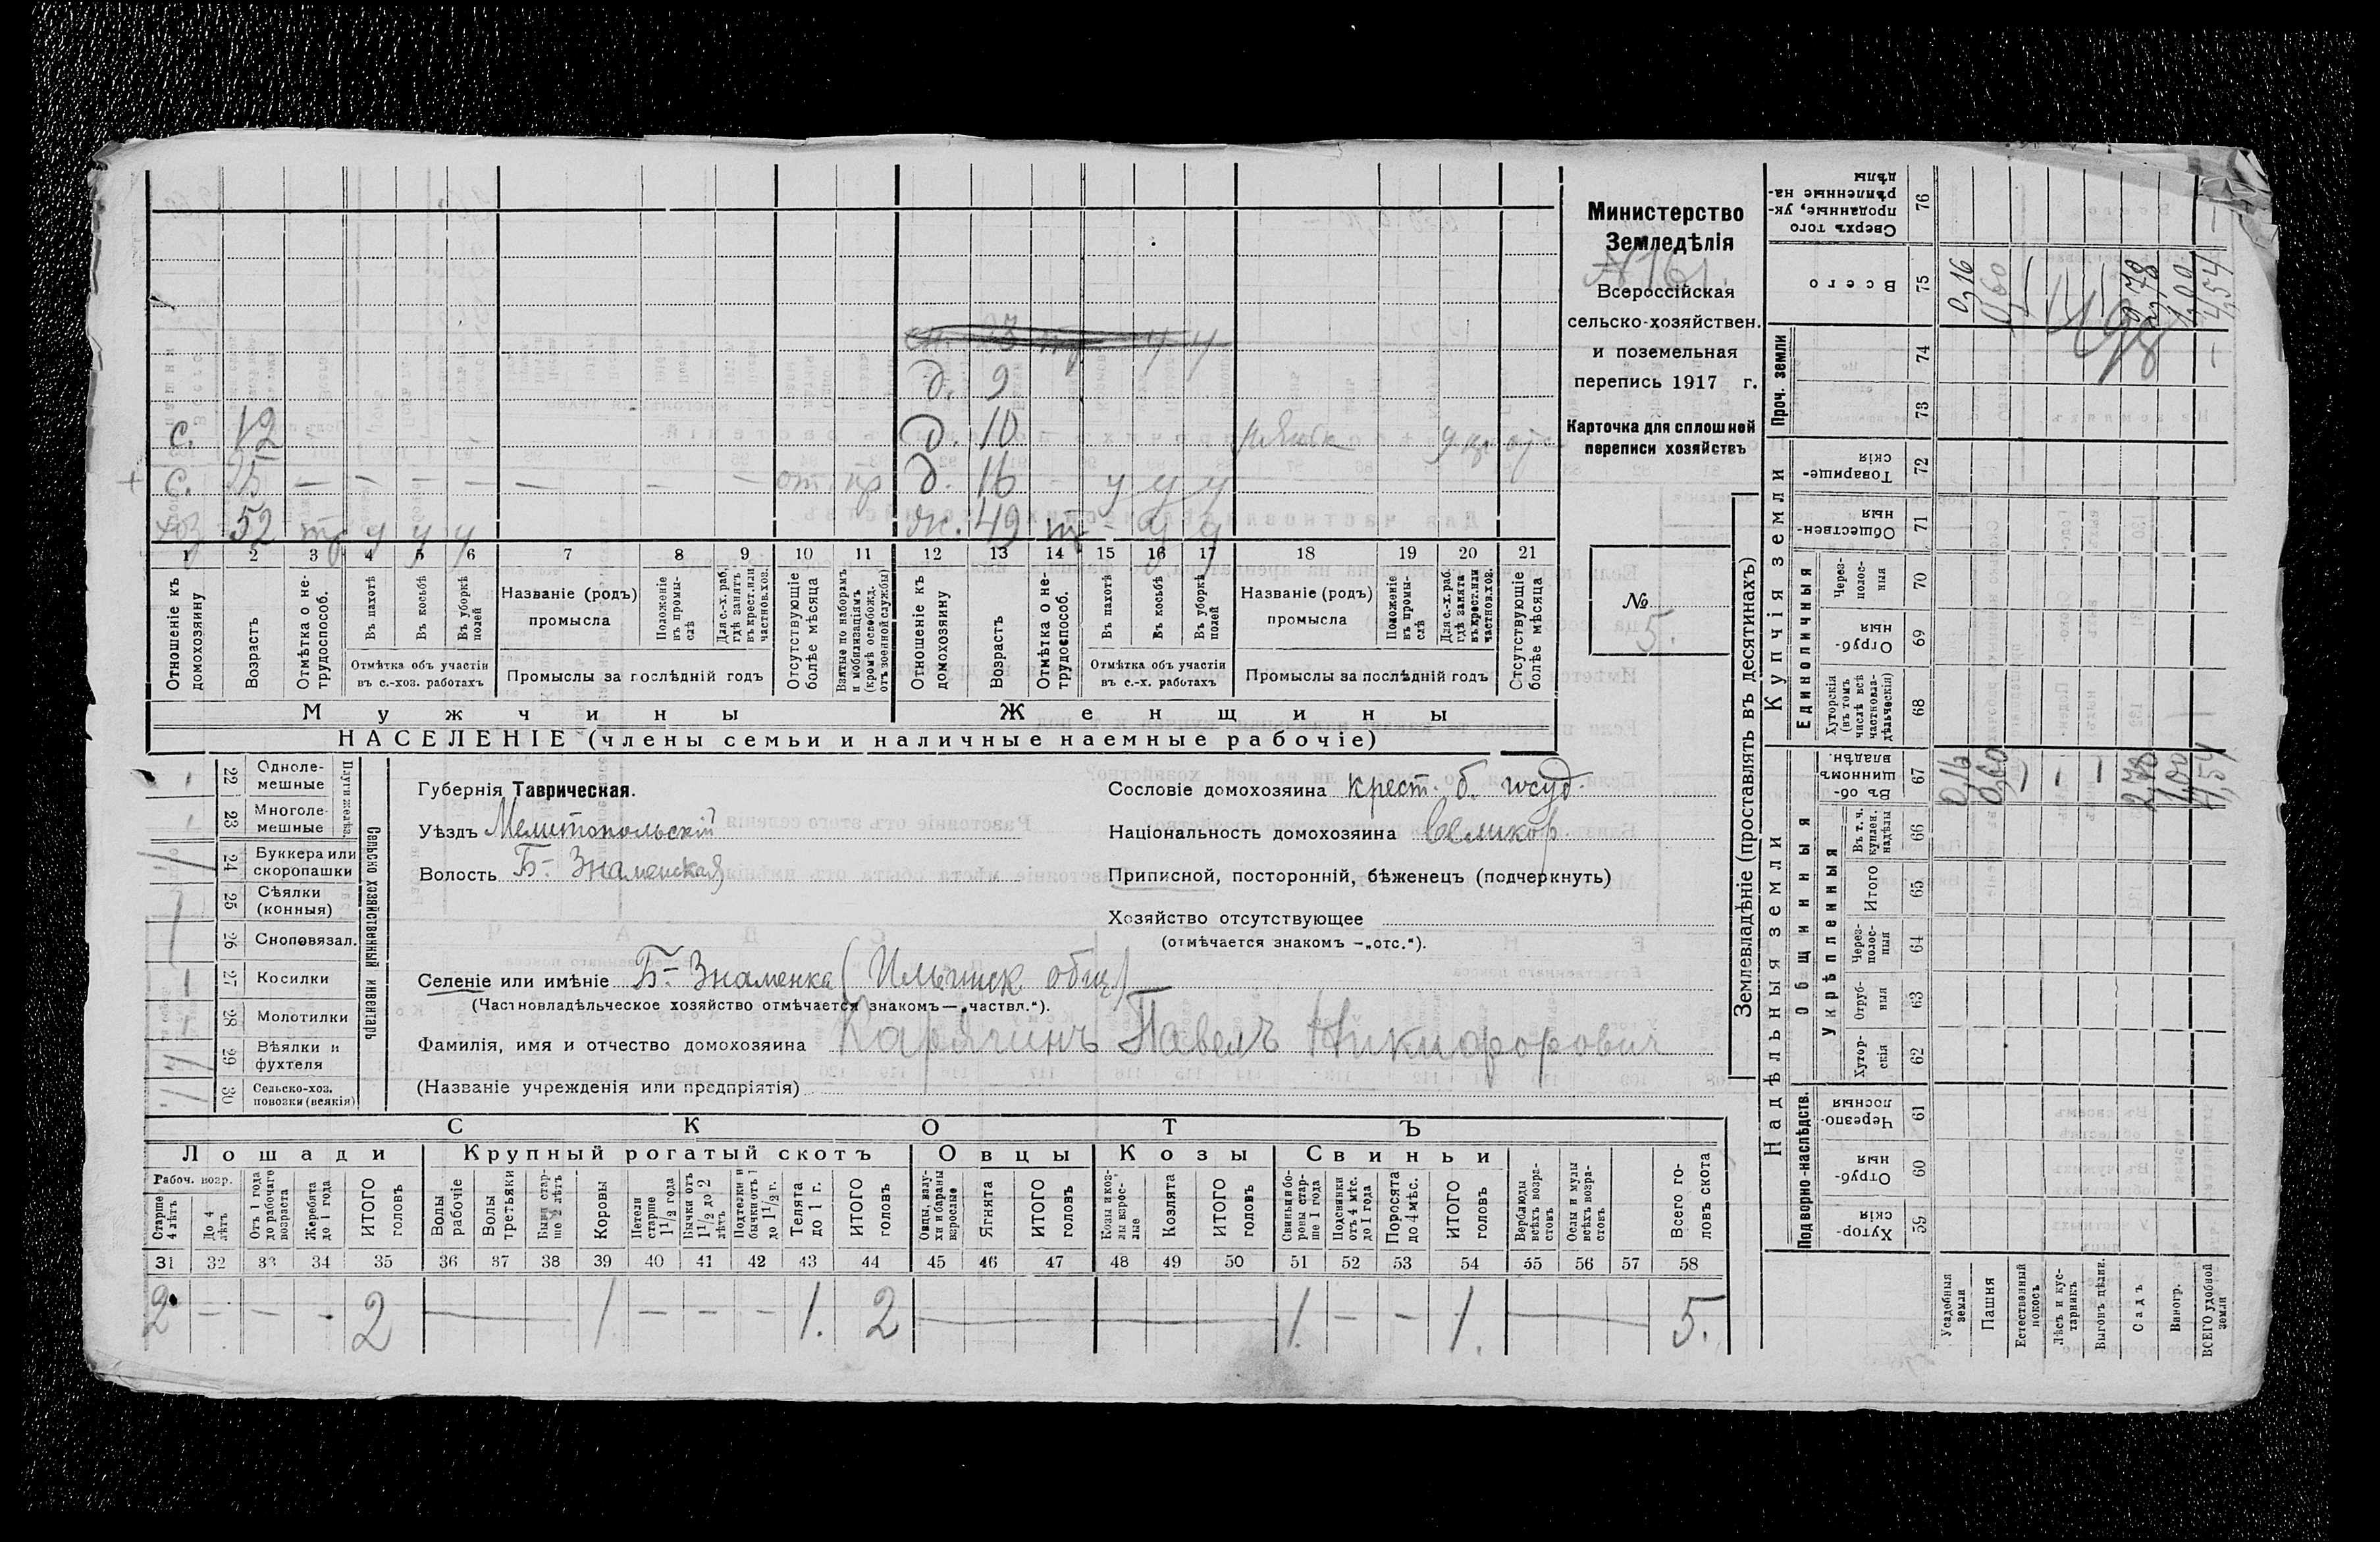 Министерство
Земледѣлія
Всероссійская
сельско-хозяйствен.
и поземельная
перепись 1917 г.
Карточка для сплошной
переписи хозяйствъ
№
5.
сп. 23 тр у у
д. 9
с. 12 д. 10
с. 25 — — — — — — — от. пр д. 16 — у у у
хоз 52 тр у у у ж. 49 т у у
1 2 3 4 5 6 7 8 9 10 11 12 13 14 15 16 17 18 19 20 21
Отношеніе къ домохозяину
Возрастъ
Отмѣтка о не-трудоспособ.
Въ пахотѣ
Въ косьбѣ
Въ уборкѣ полей
Отмѣтка объ участіи въ с.-хоз. работахъ
Названіе (родъ) промысла
Положеніе въ промы-слѣ
Для с.-х. раб. гдѣ занятъ въ крест. или частнов. хоз.
Промыслы за послѣдній годъ
Отсутствующіе болѣе мѣсяца
Взятые по наборамъ и мобилизаціямъ (кромѣ освобожд. отъ военной службы)
Отношеніе къ домохозяину
Возрастъ
Отмѣтка о не-трудоспособ.
Въ пахотѣ
Въ косьбѣ
Въ уборкѣ полей
Отмѣтка объ участіи въ с.-х. работахъ
Названіе (родъ) промысла
Положеніе въ промы-слѣ
Для с.-х. раб. гдѣ занята въ крест. или частнов. хоз.
Промыслы за послѣдній годъ
Отсутствующіе болѣе мѣсяца
Мужчины Женщины
НАСЕЛЕНІЕ (члены семьи и наличные наемные рабочіе)
22 Одноле-мешные
23 Многоле-мешные
Плуги желѣз.
24 Буккера или скоропашки
25 Сѣялки (конныя)
26 Сноповязал.
27 Косилки
28 Молотилки
29 Вѣялки и фухтеля
30 Сельско-хоз. повозки (всякія)
Сельско хозяйственный инвентарь
Губернія Таврическая.
Уѣздъ Мелитопольскій
Волость Б-Знаменская
Сословіе домохозяина крест. б. госуд.
Національность домохозяина великор
Приписной, посторонній, бѣженецъ (подчеркнуть)
Хозяйство отсутствующее
(отмѣчается знакомъ —„отс.“).
Селеніе или имѣніе Б-Знаменка (Ильинск. общ)
(Частновладѣльческое хозяйство отмѣчается знакомъ—„частвл.“).
Фамилія, имя и отчество домохозяина Карягинъ Павелъ Никифорович
(Названіе учрежденія или предпріятія)
СКОТЪ
Лошади Крупный рогатый скотъ Овцы Козы Свиньи
Рабоч. возр.
Старше 4 лѣтъ
До 4 лѣтъ
Отъ 1 года до рабочаго возраста
Жеребята до 1 года
ИТОГО головъ
Волы рабочіе
Волы третьяки
Быки стар-ше 2 лѣтъ
Коровы
Нетели старше 1 1/2 года
Бычки отъ 1 1/2 до 2 лѣтъ
Подтелки и бычки отъ 1 до 1 1/2 г.
Телята до 1 г.
ИТОГО головъ
Овцы, валу-хи и бараны взрослые
Ягнята
ИТОГО головъ
Козы и коз-лы взрос-лые
Козлята
ИТОГО головъ
Свиньи и бо-ровы стар-ше 1 года
Подсвинки отъ 4 мѣс. до 1 года
Поросята до 4 мѣс.
ИТОГО головъ
Верблюды всѣхъ возра-стовъ
Ослы и мулы всѣхъ возра-стовъ
Всего го-ловъ скота
31 32 33 34 35 36 37 38 39 40 41 42 43 44 45 46 47 48 49 50 51 52 53 54 55 56 57 58
2 — — - 2 — 1 — — - 1. 2 — — 1. - - 1. — 5.
Землевладѣніе (проставлять въ десятинахъ)
Надѣльныя земли Купчія земли Проч. земли
Подворно-наслѣдств.
Общинныя
Укрѣпленныя
Единоличныя
Хутор-скія 59
Отруб-ныя 60
Черезпо-лосныя 61
Хутор-скія 62
Отруб-ныя 63
Через-полос-ныя 64
Итого 65
Въ т. ч. куплен. надѣлы 66
Въ об-щинномъ владѣн. 67
Хуторскія (въ томъ числѣ всѣ частновла-дѣльческія) 68
Отруб-ныя 69
Через-полос-ныя 70
Обществен-ныя 71
Товарище-скія 72
73
74
Всего 75
Сверхъ того проданные, ук-рѣпленные на-дѣлы 76
Усадебныя земли 0,16 0,16
Пашня 0,60 0,60
Естественный покосъ
Лѣсъ и кус-тарникъ
Выгонъ цѣлин.
Садъ 2,78 2,78
Виногр. 1,00 1,00
ВСЕГО удобной земли 4,54 4,54